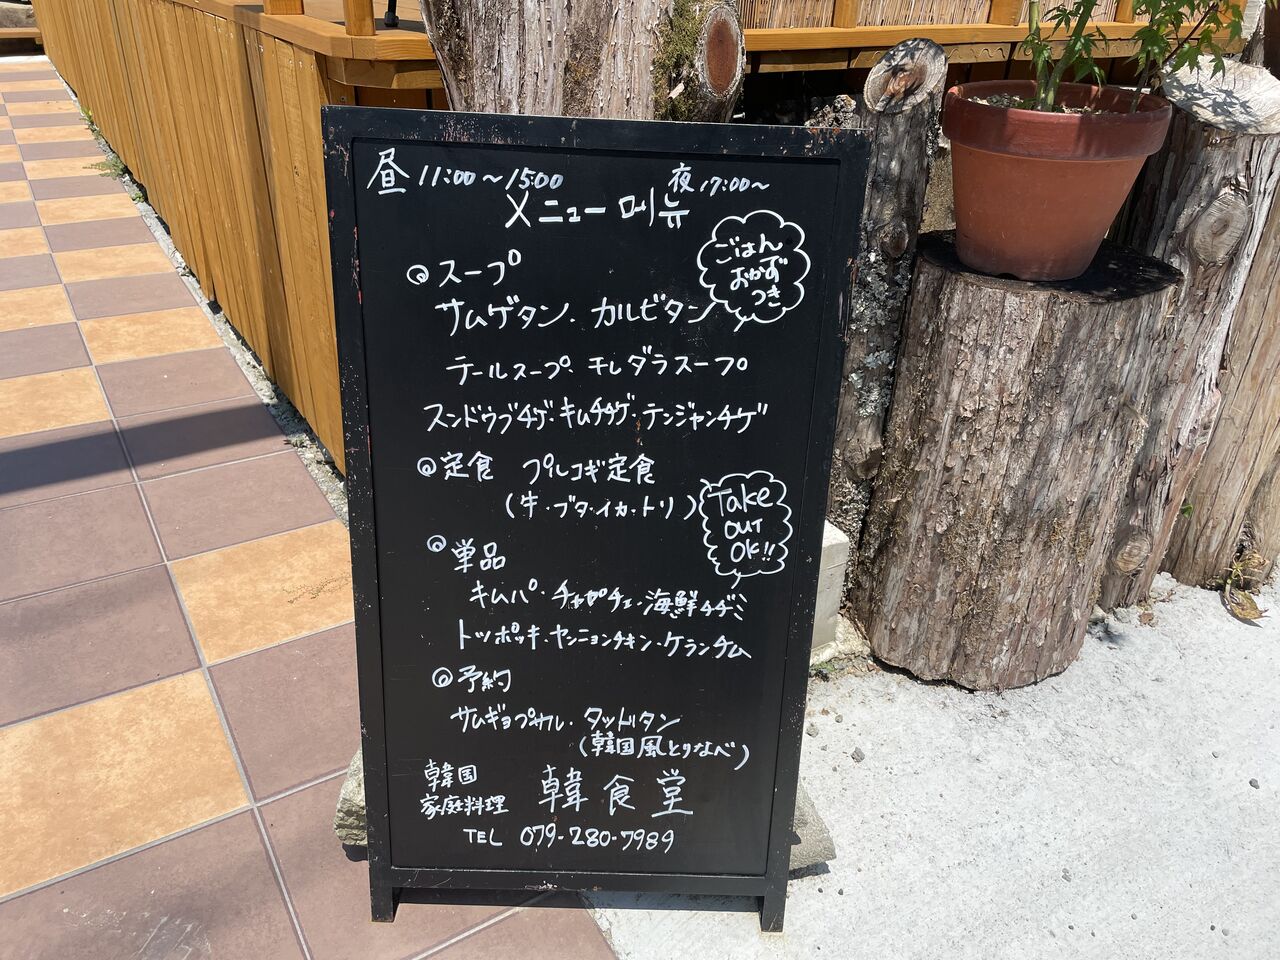 昼 11:00～15:00 夜 17:00～
メニュー 메뉴
ごはん
おかず
つき
◎スープ
サムゲタン、カルビタン
テールスープ、チレダラスープ
スンドゥブチゲ・キムチチゲ・テンジャンチゲ
◎定食 プルコギ定食
(牛・ブタ・イカ・トリ)
Take
OUT
OK!!
◎単品
キムパ・チャプチェ・海鮮チヂミ
トッポッキ・ヤンニョンチキン・ケランチム
◎予約
サムギョプサル・タッドリタン
(韓国風とりなべ)
韓国
家庭料理 韓食堂
TEL 079-280-7989